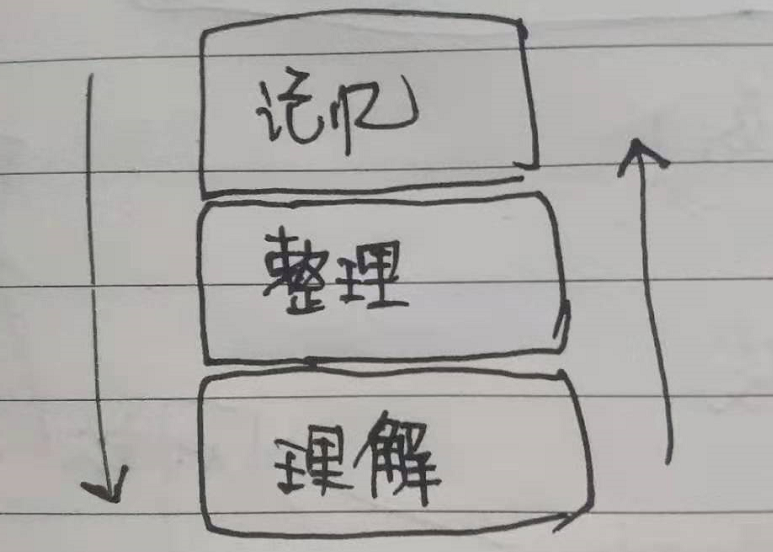 记忆
整理
理解